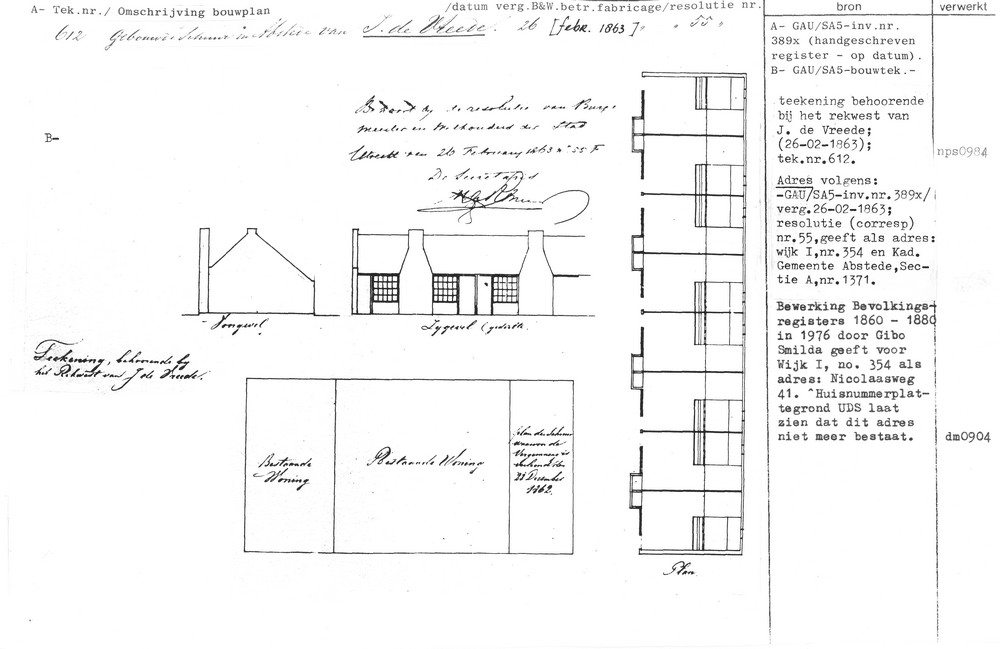 A- Tek.nr./ Omschrijving bouwplan
/datum verg.B&W.betr.fabricage/resolutie nr.
bron
verwerkt
612 Gebouw in Abstede van J. de Vreede. 26 [febr. 1863] " " 55 "
A- GAU/SA5-inv.nr.
389x (handgeschreven
register - op datum).
B- GAU/SA5-bouwtek.-
B-
Behoort by de resolutie van Burge
meester en Wethouders der Stad
Utrecht van 26 February 1863 n° 55 F
De Secretaris
teekening behoorende
bij het rekwest van
J. de Vreede;
(26-02-1863);
tek.nr.612.
nps0984
Adres volgens:
-GAU/SA5-inv.nr.389x/
verg.26-02-1863;
resolutie (corresp)
nr.55,geeft als adres:
wijk I,nr.354 en Kad.
Gemeente Abstede,Sec-
tie A,nr.1371.
Bewerking Bevolkings-
registers 1860 - 1880
in 1976 door Gibo
Smilda geeft voor
Wijk I, no. 354 als
adres: Nicolaasweg
41. ^Huisnummerplat-
tegrond UDS laat
zien dat dit adres
niet meer bestaat.
dm0904
Topgevel
Zygevel
Teekening, behoorende by
het Rekwest van J de Vreede.
Bestaande
Woning
Bestaande Woning
plan der Schuur
waarvan de
Vergunning is
verleend den
23 December
1862.
Plan.